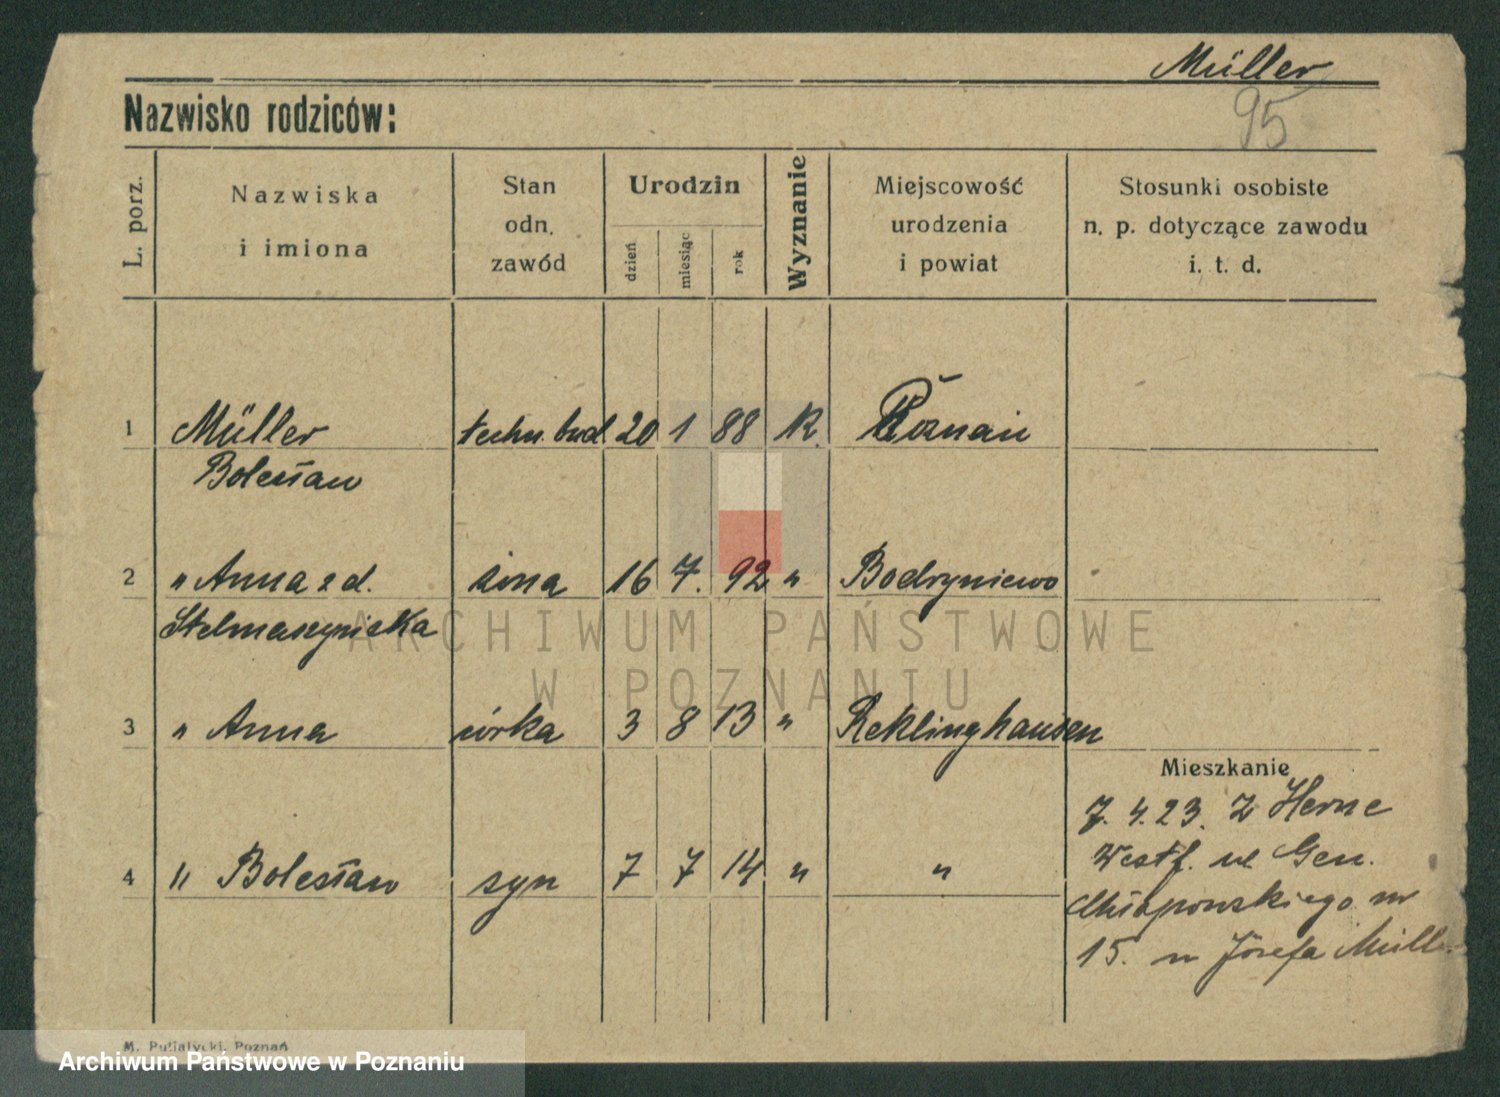 Müller
95
Nazwisko rodziców:
L. porz.
Nazwiska
i imiona
Stan
odn.
zawód
Urodzin
dzień
miesiąc
rok
Wyznanie
Miejscowość
urodzenia
i powiat
Stosunki osobiste
n. p. dotyczące zawodu
i. t. d.
1 Müller techn. bud. 20 1 88 K. Poznań
Bolesław
2 " Anna z d. żona 16 7. 92 "
3 " Anna córka 3 8 13 " Reklinghausen
Mieszkanie
7. 4. 23. Z Herne
4 " Bolesław syn 7 7 14 " "
Westf. ul Gen.
Chłapowskiego nr
15. u Józefa Müll
M. Putiatycki, Poznań
ARCHIWUM PAŃSTWOWE
W POZNANIU
Archiwum Państwowe w Poznaniu